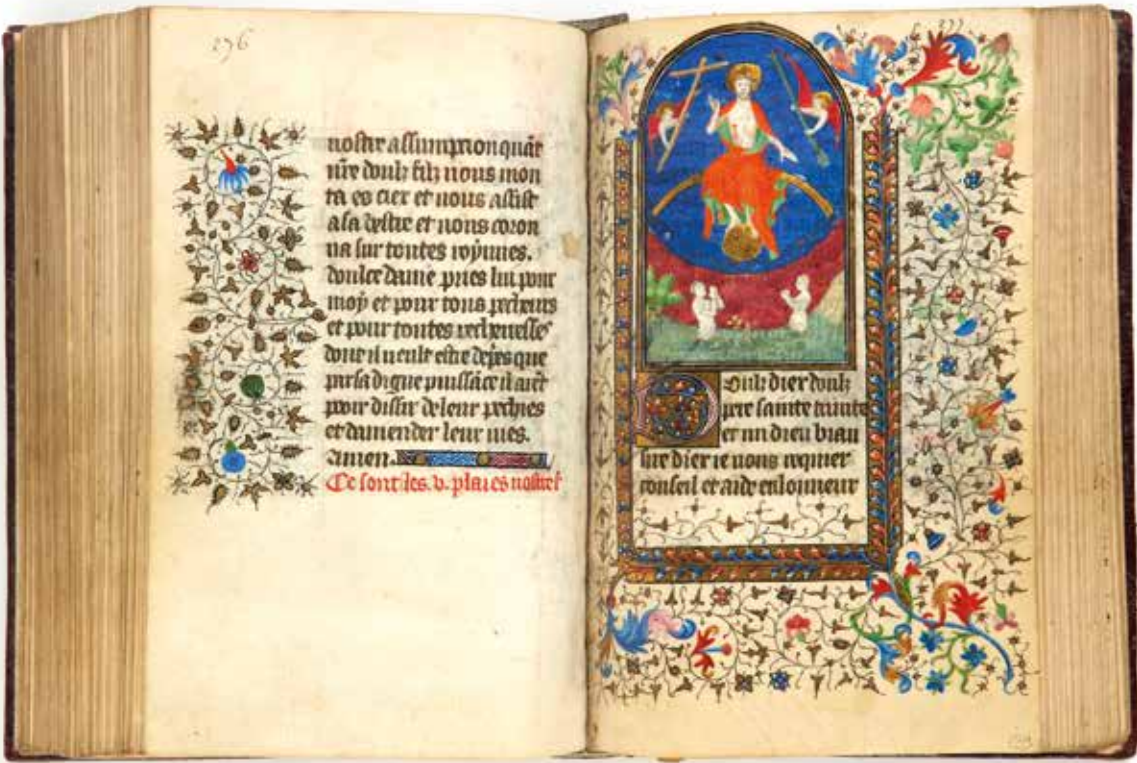 276
nostre assumption quāt
nr̄e doulz filz nous mon
ta es ciex et nous assist
a sa destre et nous coron
na sur toutes roynnes.
doulce dame pries lui pour
moy et pour tous pecheurs
et pour toutes pecheresses
dont il veult estre depries que
par sa digne puissāce il aiēt
pour dissir de leur pechies
et damender leur vies.
Amen.
Ce sont les. v. plaies nostre
277
Doulz dier doulz
pere sainte trinite
et un dieu biau
sire dier ie vous requier
conseil et aide en lonneur